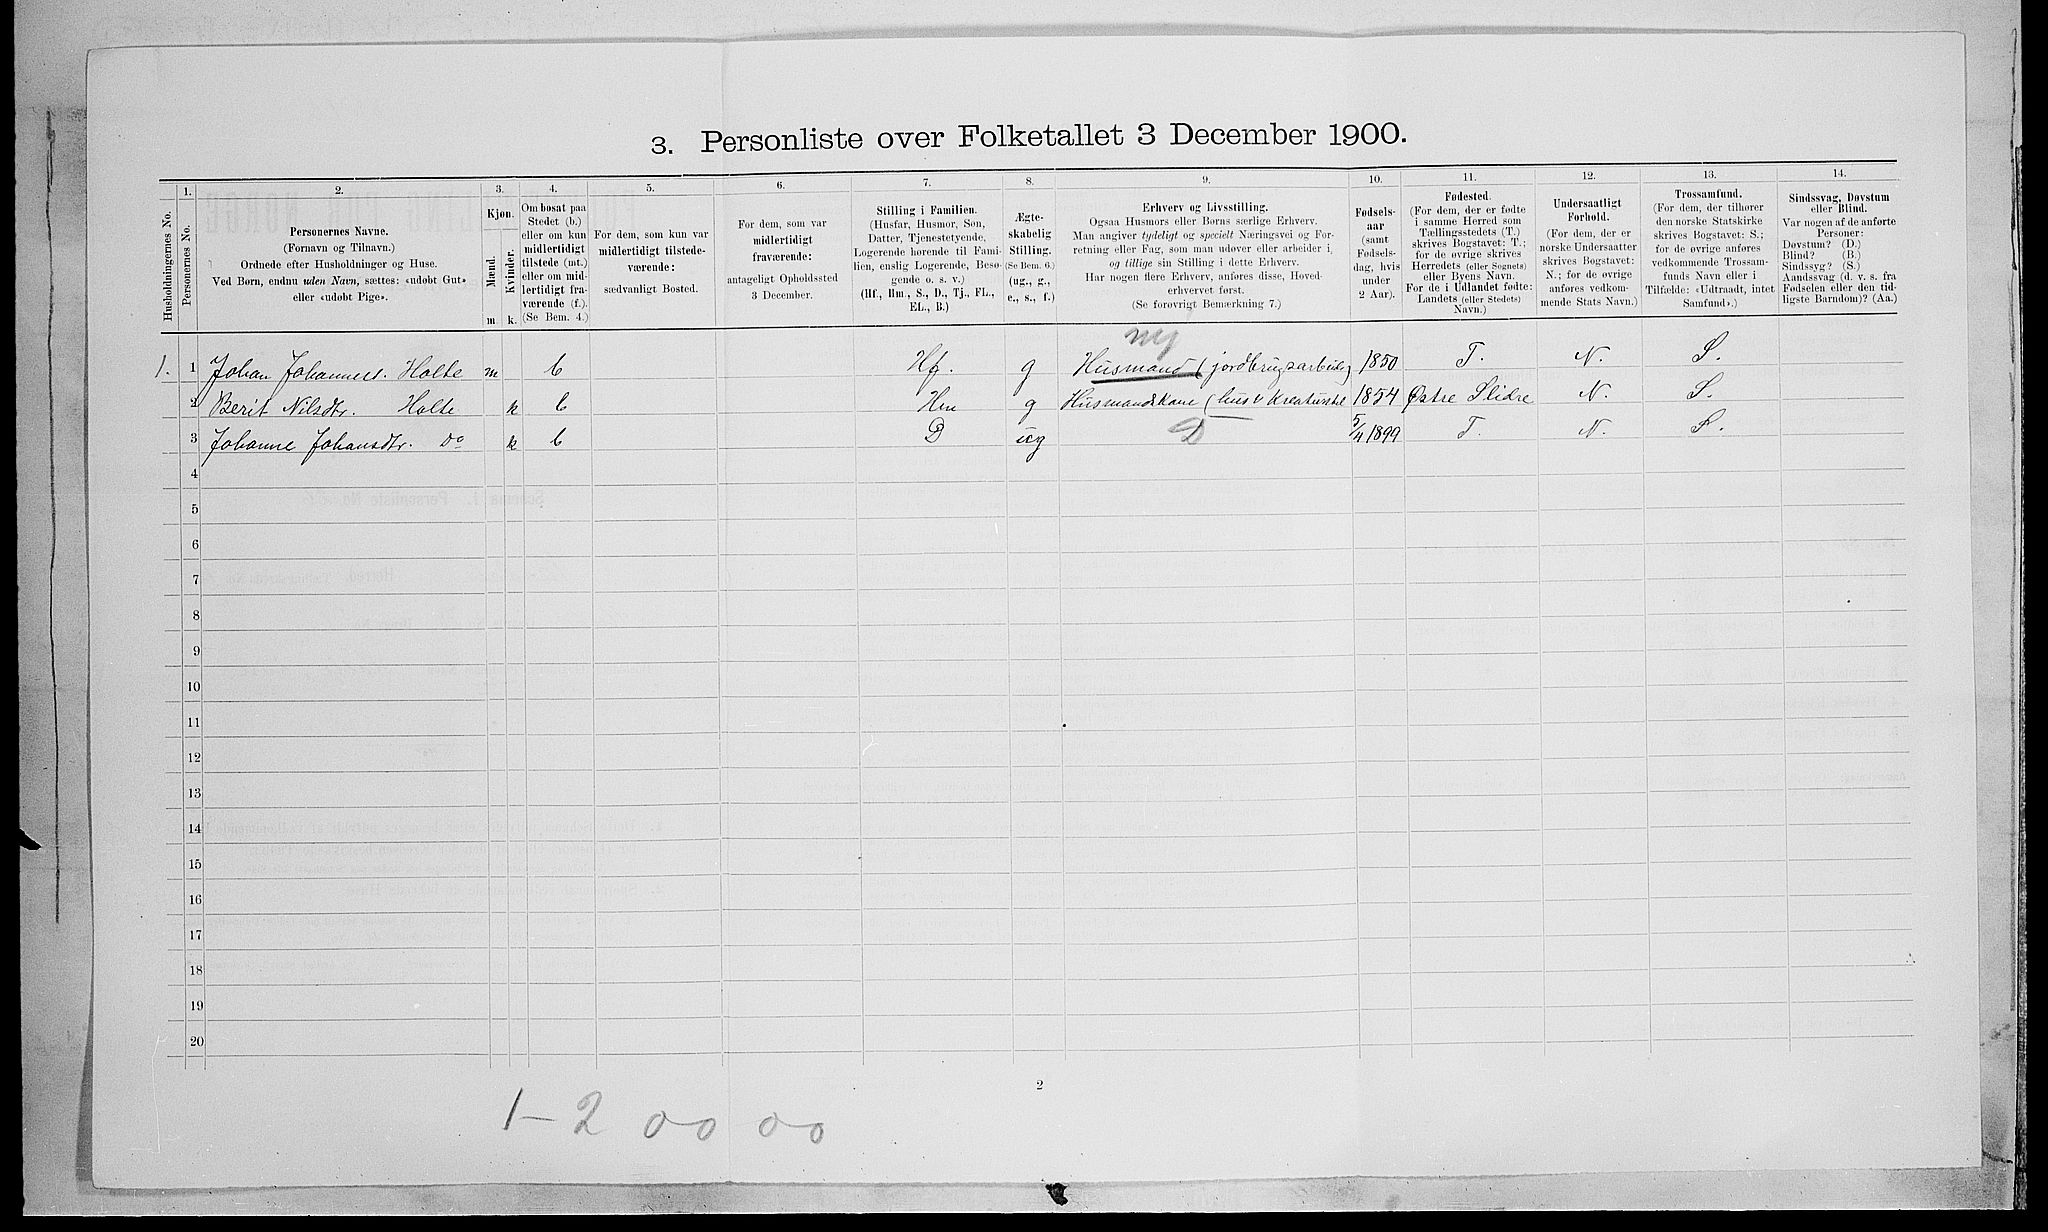 3. Personliste over Folketallet 3 December 1900.
Husholdningernes No.
1.
Personernes No.
2.
Personernes Navne.
(Fornavn og Tilnavn.)
Ordnede efter Husholdninger og Huse.
Ved Børn, endnu uden Navn, sættes: «udøbt Gut»
eller «udøbt Pige».
3.
Kjøn.
Mænd.
Kvinder.
m. k.
4.
Om bosat paa
Stedet (b.)
eller om kun
midlertidigt
tilstede (mt.)
eller om mid-
lertidigt fra-
værende (f.).
(Se Bem. 4.)
5.
For dem, som kun var
midlertidigt tilstede-
værende:
sædvanligt Bosted.
6.
For dem, som var
midlertidigt
fraværende:
antageligt Opholdssted
3 December.
7.
Stilling i Familien.
(Husfar, Husmor, Søn,
Datter, Tjenestetyende,
Logerende hørende til Fami-
lien, enslig Logerende, Besø-
gende o. s. v.)
(Hf., Hm., S., D., Tj., FL.,
EL., B.)
8.
Ægte-
skabelig
Stilling.
(Se Bem. 6.)
(ug., g.,
e., s., f.)
9.
Erhverv og Livsstilling.
Ogsaa Husmors eller Børns særlige Erhverv.
Man angiver tydeligt og specielt Næringsvei og For-
retning eller Fag, som man udøver eller arbeider i,
og tillige sin Stilling i dette Erhverv.
Har nogen flere Erhverv, anføres disse, Hoved-
erhvervet først.
(Se forøvrigt Bemærkning 7.)
10.
Fødsels-
aar
(samt
Fødsels-
dag, hvis
under
2 Aar).
11.
Fødested.
(For dem, der er fødte
i samme Herred som
Tællingsstedets (T.)
skrives Bogstavet: T.;
for de øvrige skrives
Herredets (eller Sognets)
eller Byens Navn.
For de i Udlandet fødte:
Landets (eller Stedets)
Navn.)
12.
Undersaatligt
Forhold.
(For dem, der er
norske Undersaatter
skrives Bogstavet:
N.; for de øvrige
anføres vedkom-
mende Stats Navn.)
13.
Trossamfund.
(For dem, der tilhører
den norske Statskirke
skrives Bogstavet: S.;
for de øvrige anføres
vedkommende Trossam-
funds Navn eller i
Tilfælde: «Udtraadt, intet
Samfund».)
14.
Sindssvag, Døvstum
eller Blind.
Var nogen af de anførte
Personer:
Døvstum? (D.)
Blind? (B.)
Sindssyg? (S.)
Aandssvag (d. v. s. fra
Fødselen eller den tid-
ligste Barndom)? (Aa.)
1. 1 Johan Johanness. Holte m b Hf. g Husmand (jordbrugsarbeide) 1850 T. N. S.
2 Berit Nilsdtr. Holte k b Hm g Husmandskone 1854 Østre Slidre N. S.
3 Johanne Johansdtr. Do k b D ug D 5/4 1899 T. N. S.
4
5
6
7
8
9
10
11
12
13
14
15
16
17
18
19
20
2
1-2 00 00